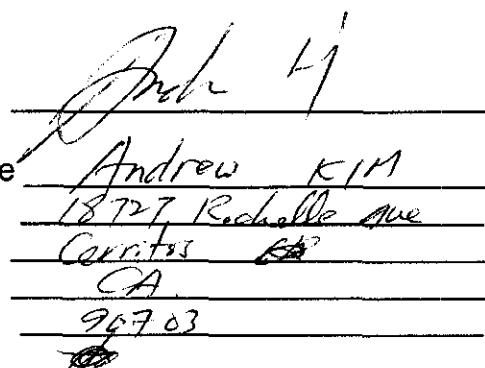 e
Andrew KIM
18727 Rochelle Ave
Cerritos
CA
90703